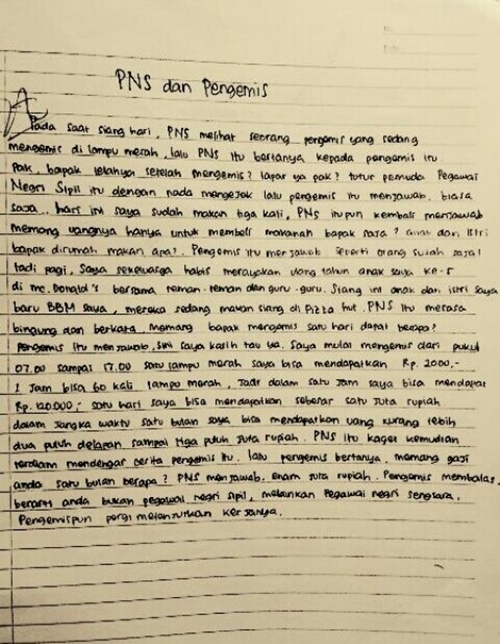 PNS dan Pengemis
Pada saat siang hari, PNS melihat seorang pengemis yang sedang
mengemis di lampu merah, lalu PNS itu bertanya kepada pengemis itu
Pak, bapak lelahnya setelah mengemis? lapar ya pak? tutur pemuda Pegawai
Negri Sipil itu dengan nada mengejek lalu pengemis itu menjawab, biasa
saja.. hari ini saya sudah makan tiga kali, PNS itupun kembali menjawab
memang uangnya hanya untuk membeli makanah bapak saja? anak dan istri
bapak dirumah makan apa? Pengemis itu menjawab seperti orang susah saja!
tadi pagi, saya sekeluarga habis merayakan ulang tahun anak saya ke-5
di mc.Donald's bersama teman-teman dan guru-guru. Siang ini anak dan istri saya
baru BBM saya, mereka sedang makan siang di Pizza hut. PNS itu merasa
bingung dan berkata, memang bapak mengemis satu hari dapat berapa?
Pengemis itu menjawab, sini saya kasih tau ya. Saya mulai mengemis dari pukul
07.00 sampai 17.00 satu lampu merah saya bisa mendapatkan Rp. 2000,-
1 Jam bisa 60 kali lampu merah, Jadi dalam satu jam saya bisa mendapat
Rp. 120.000,- satu hari saya bisa mendapatkan sebesar satu Juta rupiah
dalam jangka waktu satu bulan saya bisa mendapatkan uang kurang lebih
dua puluh delapan sampai tiga puluh Juta rupiah. PNS itu kaget kemudian
terdiam mendengar cerita pengemis itu. lalu pengemis bertanya, memang gaji
anda satu bulan berapa? PNS menjawab, enam juta rupiah. Pengemis membalas,
berarti anda bukan pegawai negri sipil, melainkan Pegawai negri sengsara.
Pengemispun pergi melanjutkan kerjanya.